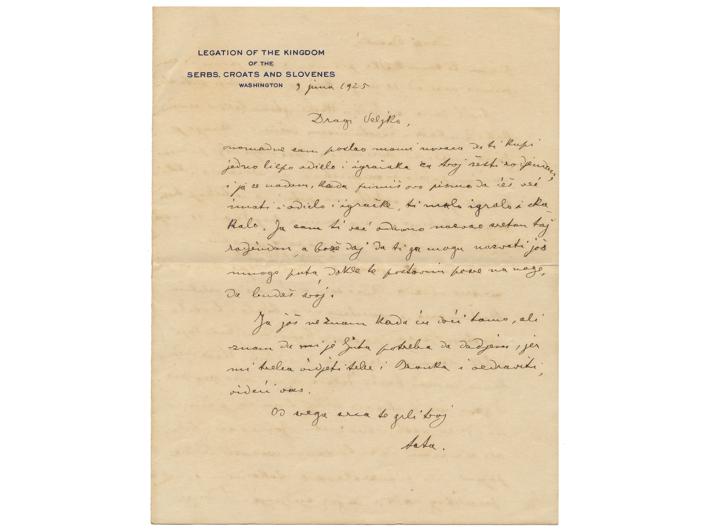 LEGATION OF THE KINGDOM
OF THE
SERBS, CROATS AND SLOVENES
WASHINGTON 9 juna 1925
Dragi Veljko,
sam poslao mami novaca da ti kupi
jedno liepo odielo i igračaka za tvoj šesti rodjendan,
i ja se nadam, kada primiš ovo pismo da ćeš već
imati i odielo i igračke, ti malo igralo i ska
kalo. Ja sam ti već odavno nazvao sretan taj
rodjendan, a bože daj da ti ga mogu nazvati još
mnogo puta, dokle te postavim pose na noge,
da budeš svoj.
Ja još ne znam kada ću doći tamo, ali
znam da mi je ljuta potreba da dodjem, jer
mi treba vidjeti tebe i Branka i ozdraviti,
videći vas.
Od svega srca te grli tvoj
tata.